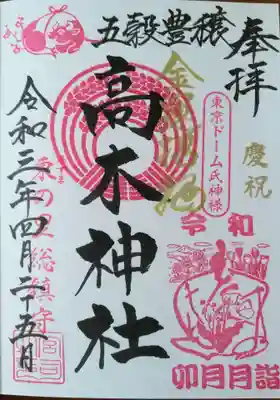 奉拝
慶祝
五穀豊穣
東京ドーム氏神様
高木神社
総鎮守
令和三年四月二十五日
令和
卯月月詣